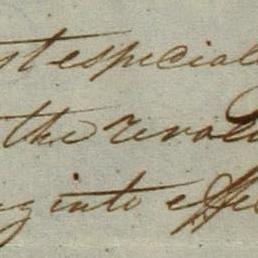 st especial
the revolu
g into effe